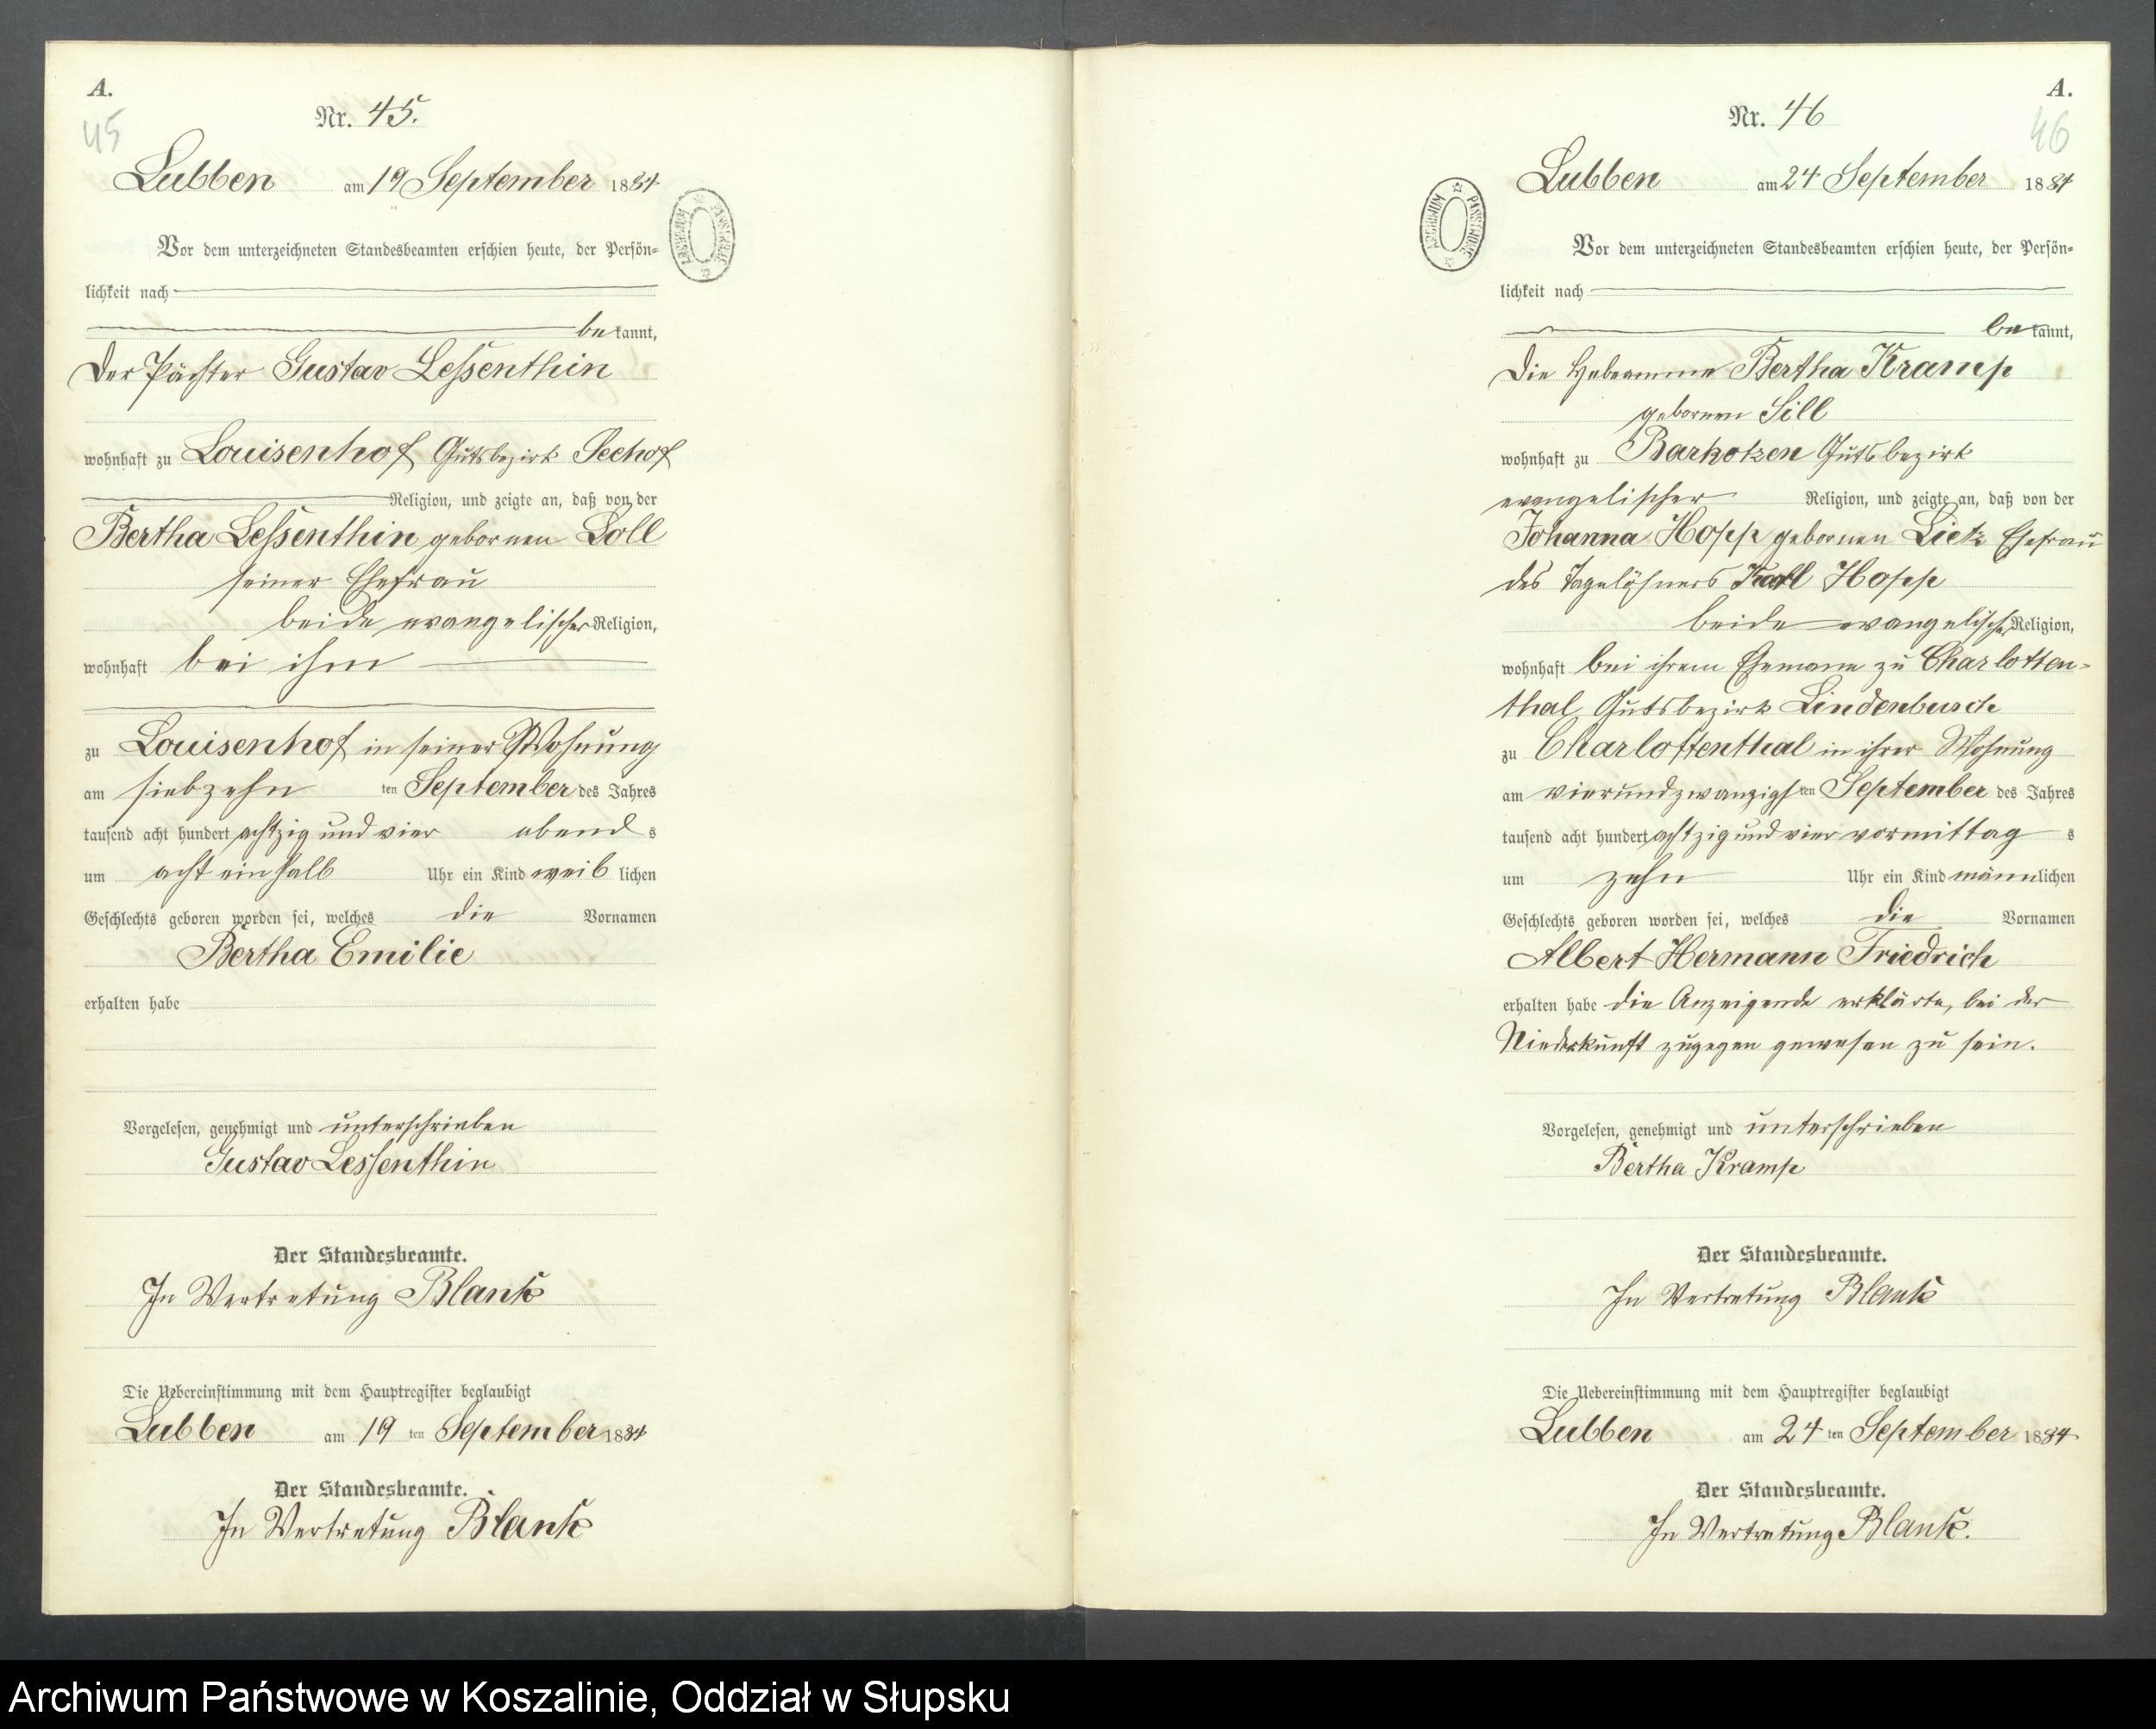 A.
45
Nr. 45.
Lubben am 19 September 1884
ARCHIWUM PAŃSTWOWE
Vor dem unterzeichneten Standesbeamten erschien heute, der Persön-
lichkeit nach
bekannt,
Der Pächter Gustav Lessenthin
wohnhaft zu Louisenhof Gutsbezirk Seehof
Religion, und zeigte an, daß von der
Bertha Lessenthin gebornen Loll
seiner Ehefrau
beide evangelischer Religion,
wohnhaft bei ihm
zu Louisenhof in seiner Wohnung
am siebzehn ten September des Jahres
tausend acht hundert achtzig und vier abends
um acht ein halb Uhr ein Kind weiblichen
Geschlechts geboren worden sei, welches die Vornamen
Bertha Emilie
erhalten habe
Vorgelesen, genehmigt und unterschrieben
Gustav Lessenthin
Der Standesbeamte.
In Vertretung Blank
Die Uebereinstimmung mit dem Hauptregister beglaubigt
Lubben am 19 ten September 1884
Der Standesbeamte.
In Vertretung Blank
A.
46
Nr. 46
Lubben am 24 September 1884
ARCHIWUM PAŃSTWOWE
Vor dem unterzeichneten Standesbeamten erschien heute, der Persön-
lichkeit nach
bekannt,
Die Hebeamme Bertha Kramp
gebornen Sill
wohnhaft zu Barkotzen Gutsbezirk
evangelischer Religion, und zeigte an, daß von der
Johanna Hopp gebornen Lietz Ehefrau
des Tagelöhners Karl Hopp
beide evangelischer Religion,
wohnhaft bei ihrem Ehemann zu Charlotten-
thal Gutsbezirk Lindenbusch
zu Charlottenthal in ihrer Wohnung
am vierundzwanzigsten September des Jahres
tausend acht hundert achtzig und vier vormittags
um zehn Uhr ein Kind männlichen
Geschlechts geboren worden sei, welches die Vornamen
Albert Hermann Friedrich
erhalten habe die Anzeigende erklärte, bei der
Niederkunft zugegen gewesen zu sein.
Vorgelesen, genehmigt und unterschrieben
Bertha Kramp
Der Standesbeamte.
In Vertretung Blank
Die Uebereinstimmung mit dem Hauptregister beglaubigt
Lubben am 24 ten September 1884
Der Standesbeamte.
In Vertretung Blank.
Archiwum Państwowe w Koszalinie, Oddział w Słupsku